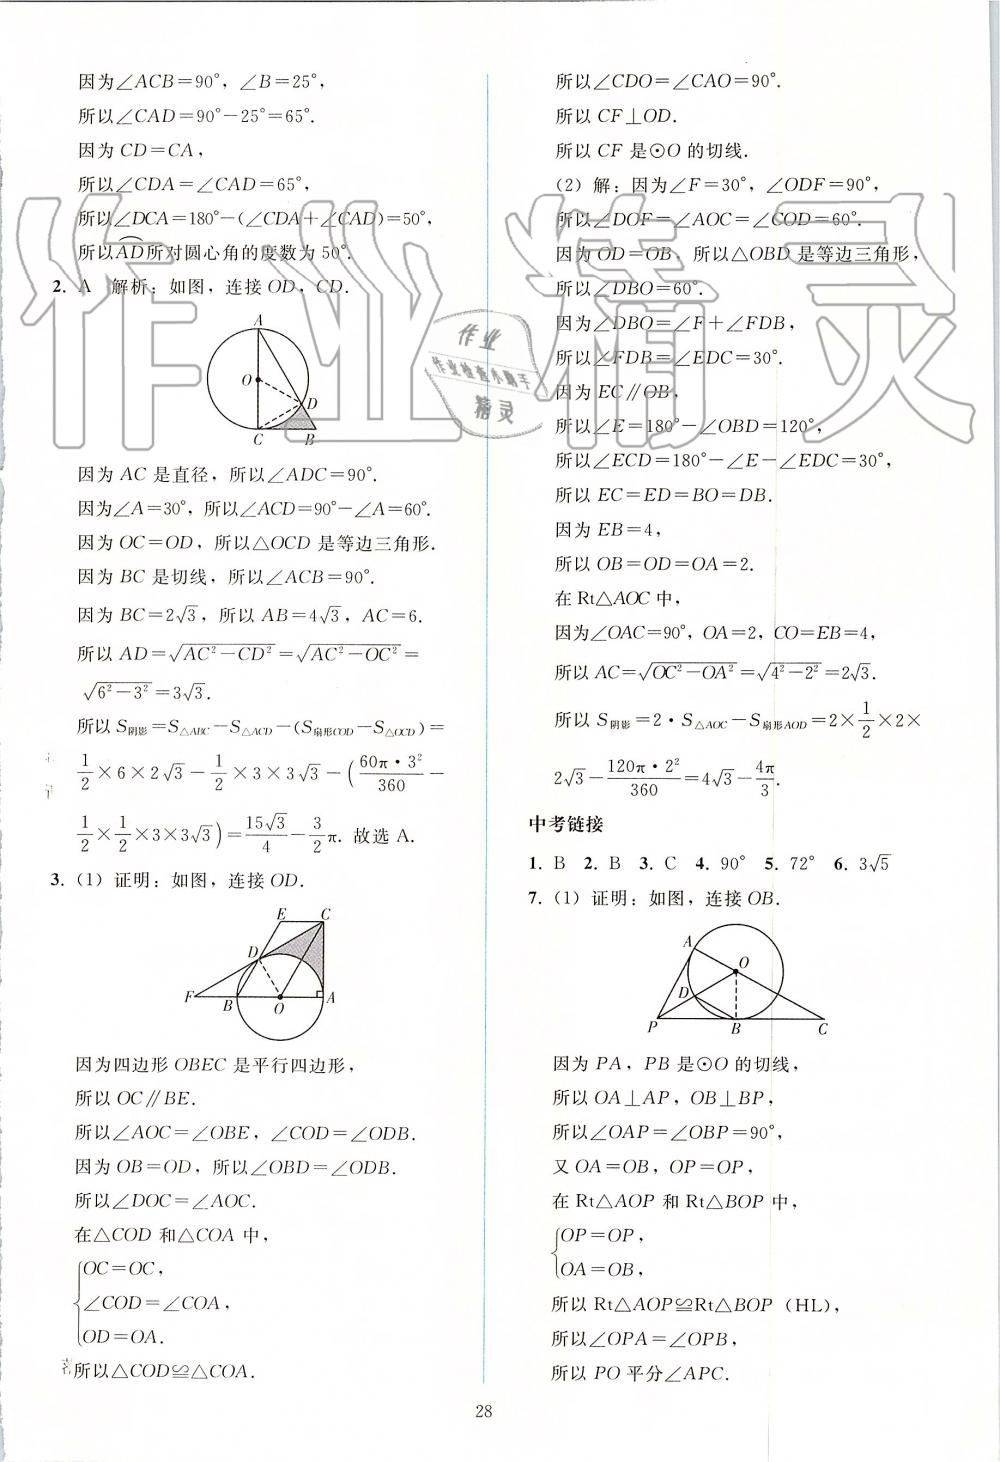 因为∠ACB=90°，∠B=25°，
所以∠CAD=90°-25°=65°.
因为 CD=CA，
所以∠CDA=∠CAD=65°，
所以∠DCA=180°-(∠CDA+∠CAD)=50°，
所以A͡D所对圆心角的度数为 50°.
2. A 解析：如图，连接 OD，CD.
A
O
D
C
B
因为 AC 是直径，所以∠ADC=90°.
因为∠A=30°，所以∠ACD=90°-∠A=60°.
因为 OC=OD，所以△OCD 是等边三角形.
因为 BC 是切线，所以∠ACB=90°.
因为 BC=2√3，所以 AB=4√3，AC=6.
所以 AD=√(AC²-CD²)=√(AC²-OC²)=
√(6²-3²)=3√3.
所以 S阴影=S△ABC-S△ACD-(S扇形COD-S△OCD)=
1/2×6×2√3-1/2×3×3√3-(60π·3²/360-
1/2×1/2×3×3√3)=15√3/4-3/2π. 故选 A.
3.（1）证明：如图，连接 OD.
E C
D
F B O A
因为四边形 OBEC 是平行四边形，
所以 OC∥BE.
所以∠AOC=∠OBE，∠COD=∠ODB.
因为 OB=OD，所以∠OBD=∠ODB.
所以∠DOC=∠AOC.
在△COD 和△COA 中，
{OC=OC，
∠COD=∠COA，
OD=OA.
所以△COD≌△COA.
所以∠CDO=∠CAO=90°.
所以 CF⊥OD.
所以 CF 是⊙O 的切线.
（2）解：因为∠F=30°，∠ODF=90°，
所以∠DOF=∠AOC=∠COD=60°.
因为 OD=OB，所以△OBD 是等边三角形，
所以∠DBO=60°.
因为∠DBO=∠F+∠FDB，
所以∠FDB=∠EDC=30°.
因为 EC∥OB，
所以∠E=180°-∠OBD=120°，
所以∠ECD=180°-∠E-∠EDC=30°，
所以 EC=ED=BO=DB.
因为 EB=4，
所以 OB=OD=OA=2.
在 Rt△AOC 中，
因为∠OAC=90°，OA=2，CO=EB=4，
所以 AC=√(OC²-OA²)=√(4²-2²)=2√3.
所以 S阴影=2·S△AOC-S扇形AOD=2×1/2×2×
2√3-120π·2²/360=4√3-4π/3.
中考链接
1. B 2. B 3. C 4. 90° 5. 72° 6. 3√5
7.（1）证明：如图，连接 OB.
A
O
D
P B C
因为 PA，PB 是⊙O 的切线，
所以 OA⊥AP，OB⊥BP，
所以∠OAP=∠OBP=90°，
又 OA=OB，OP=OP，
在 Rt△AOP 和 Rt△BOP 中，
{OP=OP，
OA=OB，
所以 Rt△AOP≌Rt△BOP（HL），
所以∠OPA=∠OPB，
所以 PO 平分∠APC.
28
作业精灵
作业
作业检查小助手
精灵